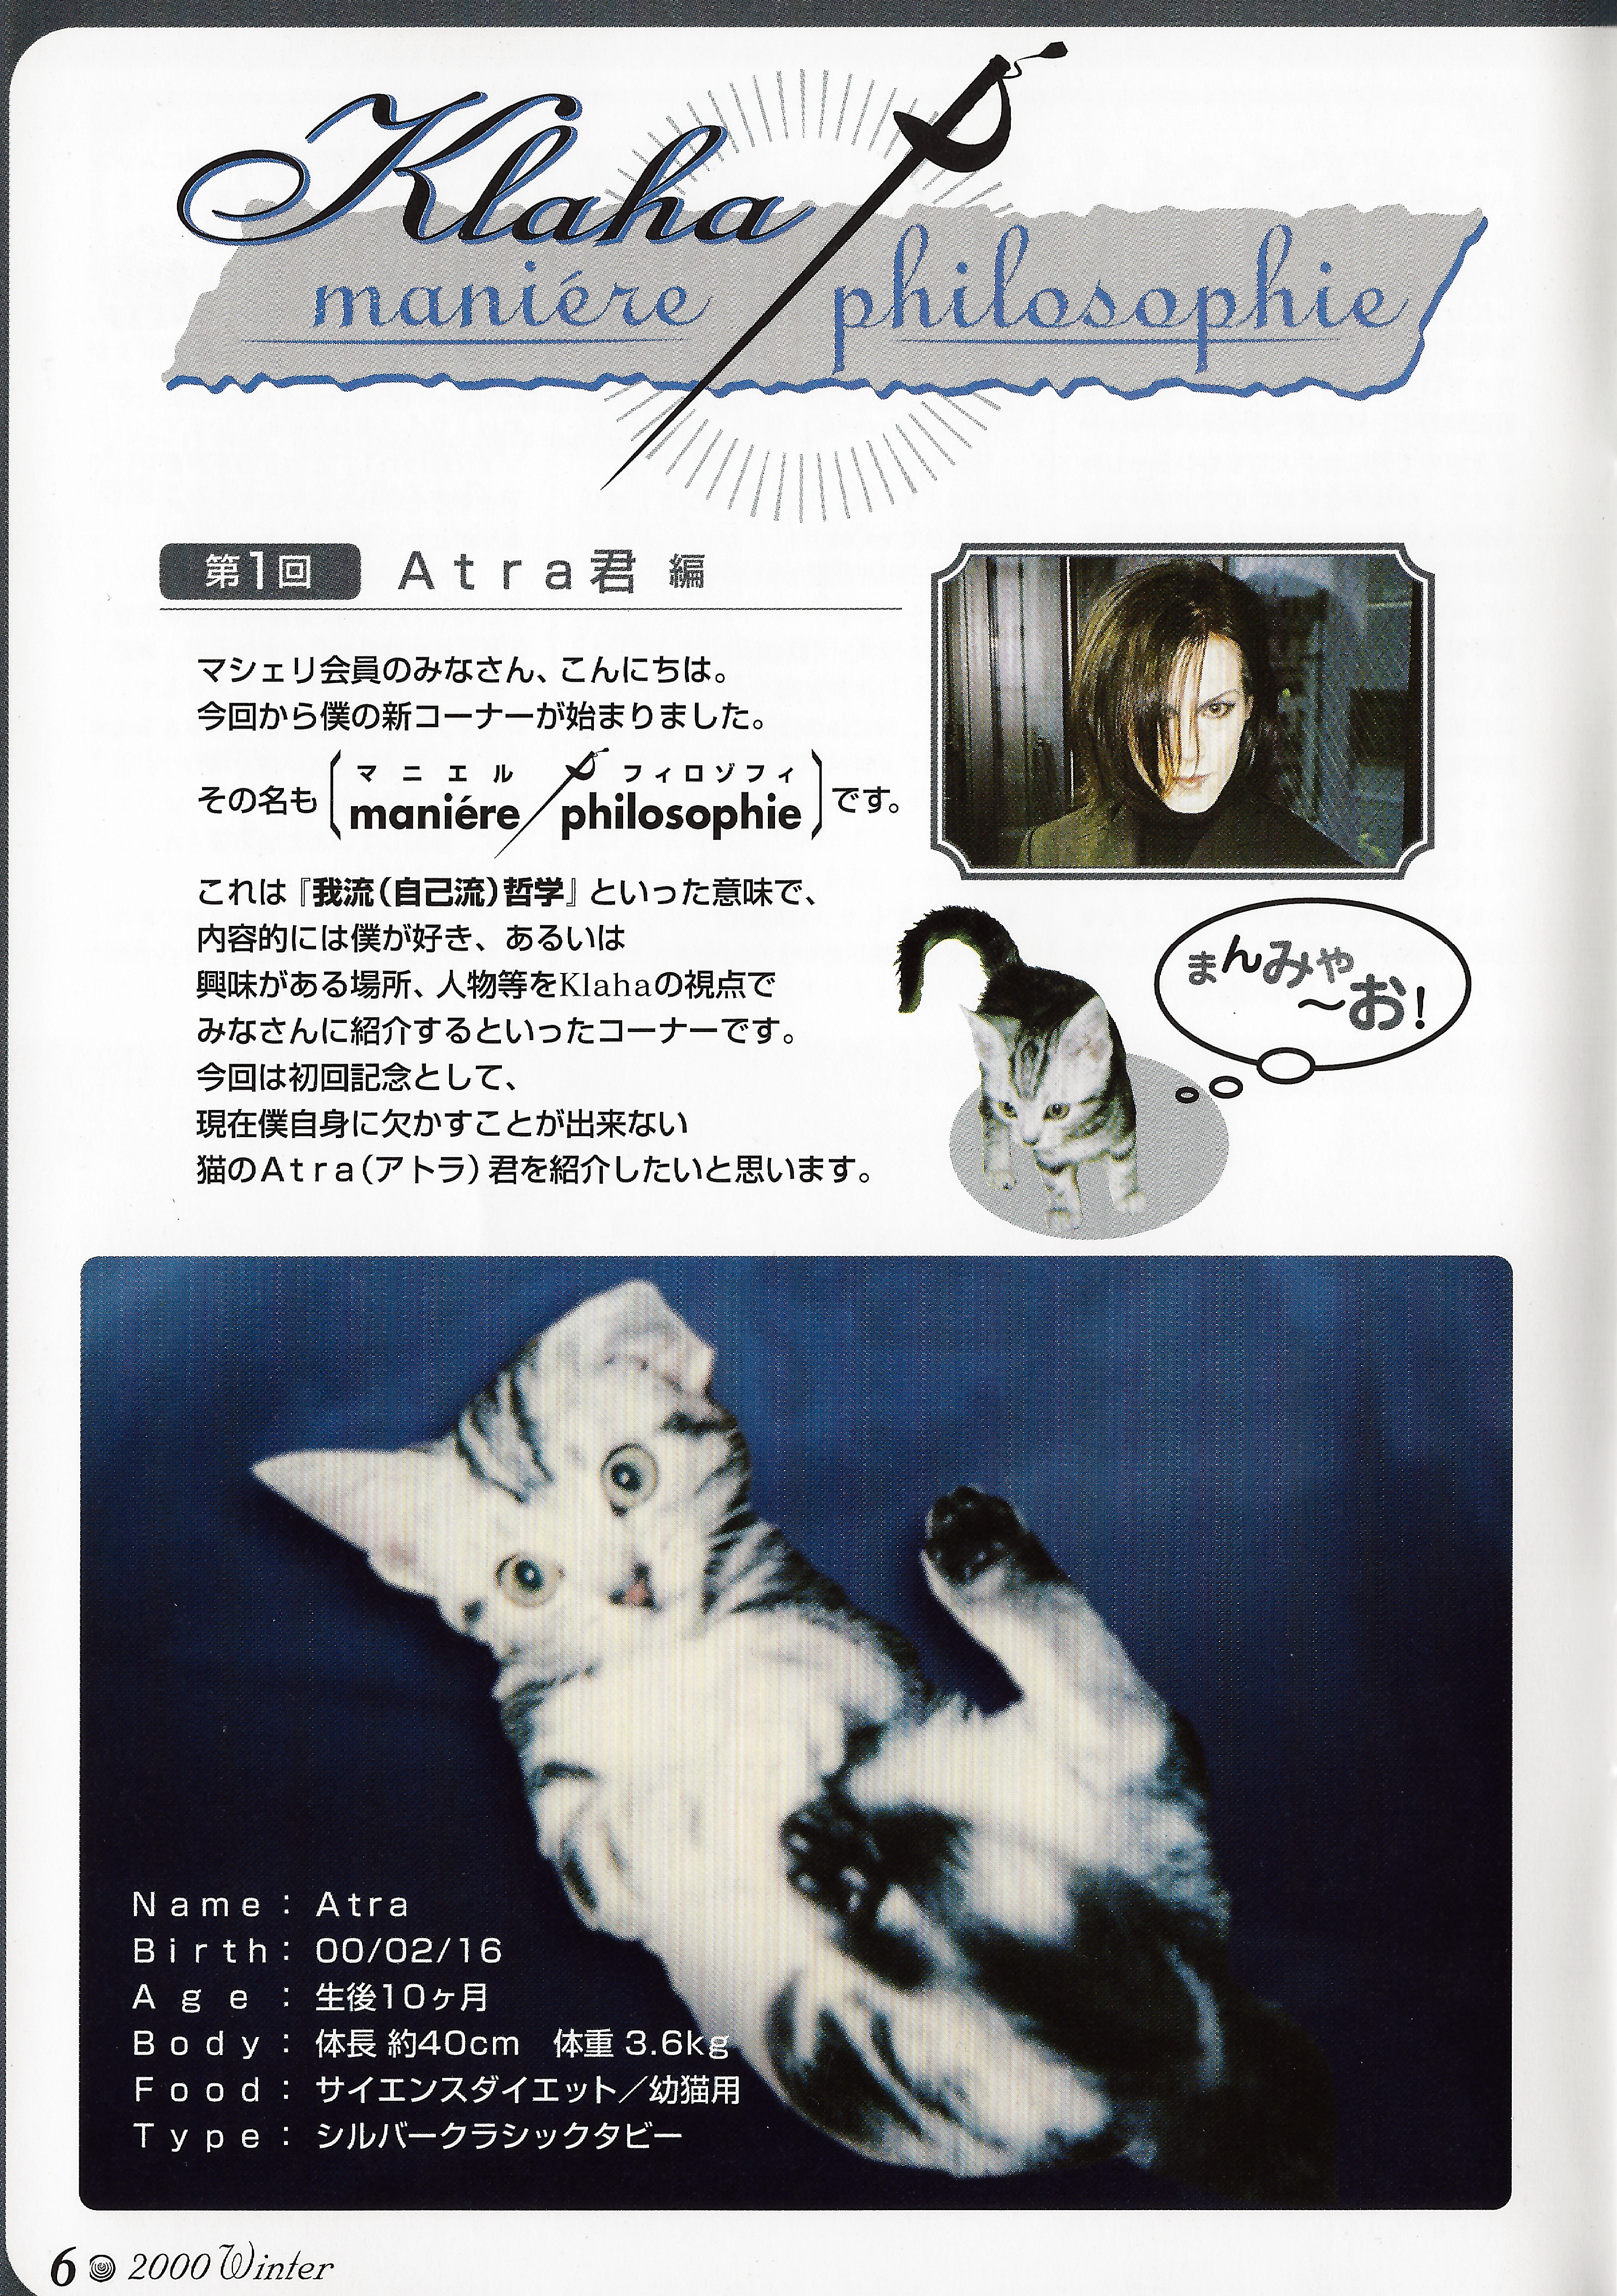 Klaha
maniére philosophie
第1回 Atra君 編
マシェリ会員のみなさん、こんにちは。
今回から僕の新コーナーが始まりました。
マニエル フィロゾフィ
その名も maniére philosophie です。
これは『我流(自己流)哲学』といった意味で、
内容的には僕が好き、あるいは
興味がある場所、人物等をKlahaの視点で
みなさんに紹介するといったコーナーです。
今回は初回記念として、
現在僕自身に欠かすことが出来ない
猫のAtra(アトラ)君を紹介したいと思います。
まんみゃ
〜お!
Name : Atra
Birth : 00/02/16
Age : 生後10ヶ月
Body : 体長 約40cm 体重 3.6kg
Food : サイエンスダイエット/幼猫用
Type : シルバークラシックタビー
6 2000 Winter